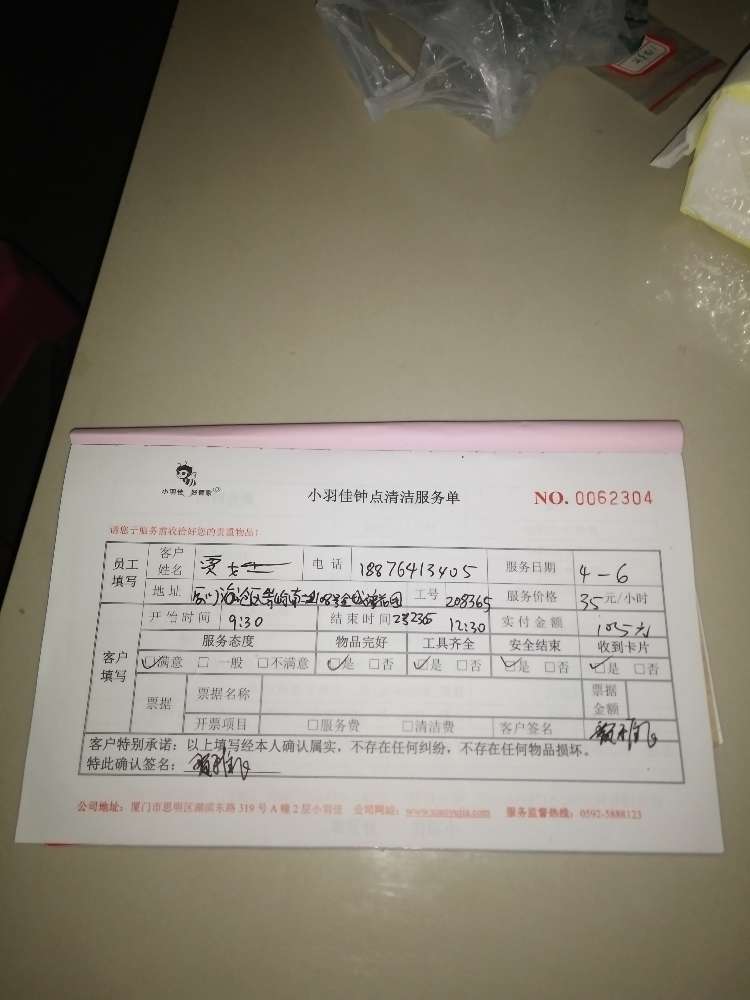 小羽佳 好管家
小羽佳钟点清洁服务单
NO. 0062304
请您于服务前收拾好您的贵重物品！
员工填写 客户姓名 电话 18876413405 服务日期 4-6
地址 工号 208365 服务价格 35元/小时
开始时间 9:30 结束时间 12:30 实付金额 105元
客户填写 服务态度 物品完好 工具齐全 安全结束 收到卡片
☑满意 □一般 □不满意 ☑是 □否 ☑是 □否 ☑是 □否 ☑是 □否
票据 票据名称 票据金额
开票项目 □服务费 □清洁费 客户签名
客户特别承诺：以上填写经本人确认属实，不存在任何纠纷，不存在任何物品损坏。
特此确认签名：
公司地址：厦门市思明区湖滨东路 319 号 A 幢 2 层小羽佳 公司网站：www.xiaoyujia.com 服务监督热线：0592-5888123